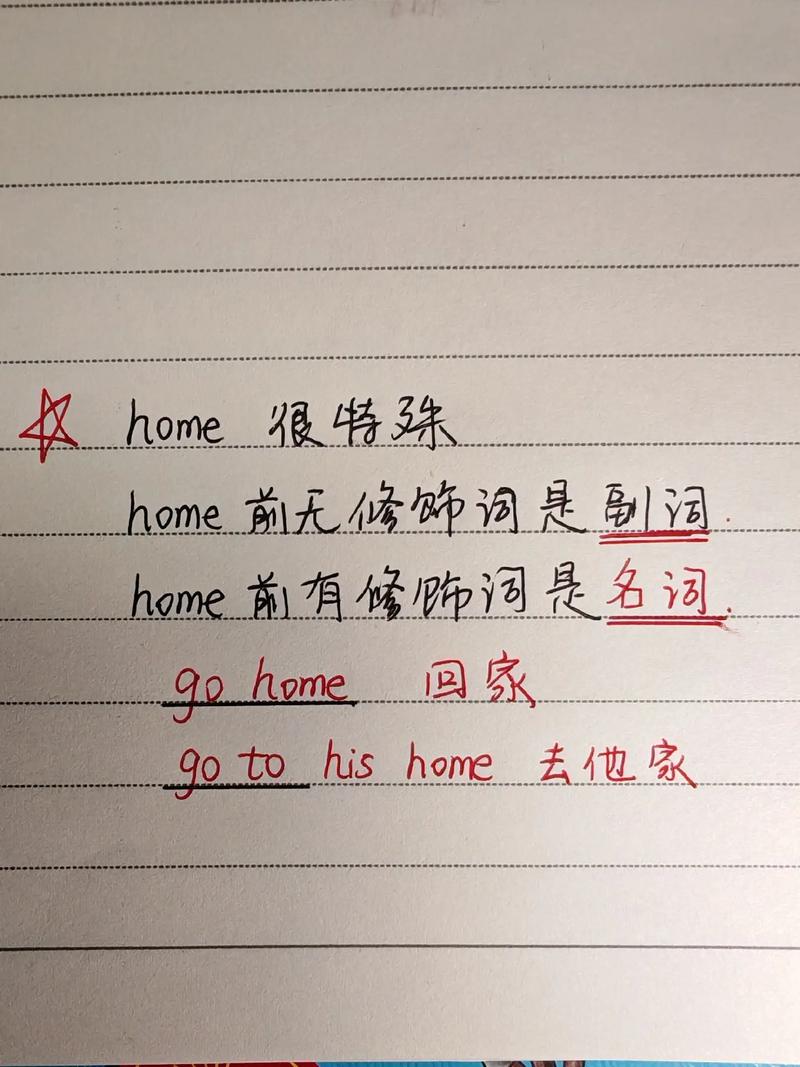 ☆ home 很特殊
home 前无修饰词是副词.
home 前有修饰词是名词.
go home 回家
go to his home 去他家